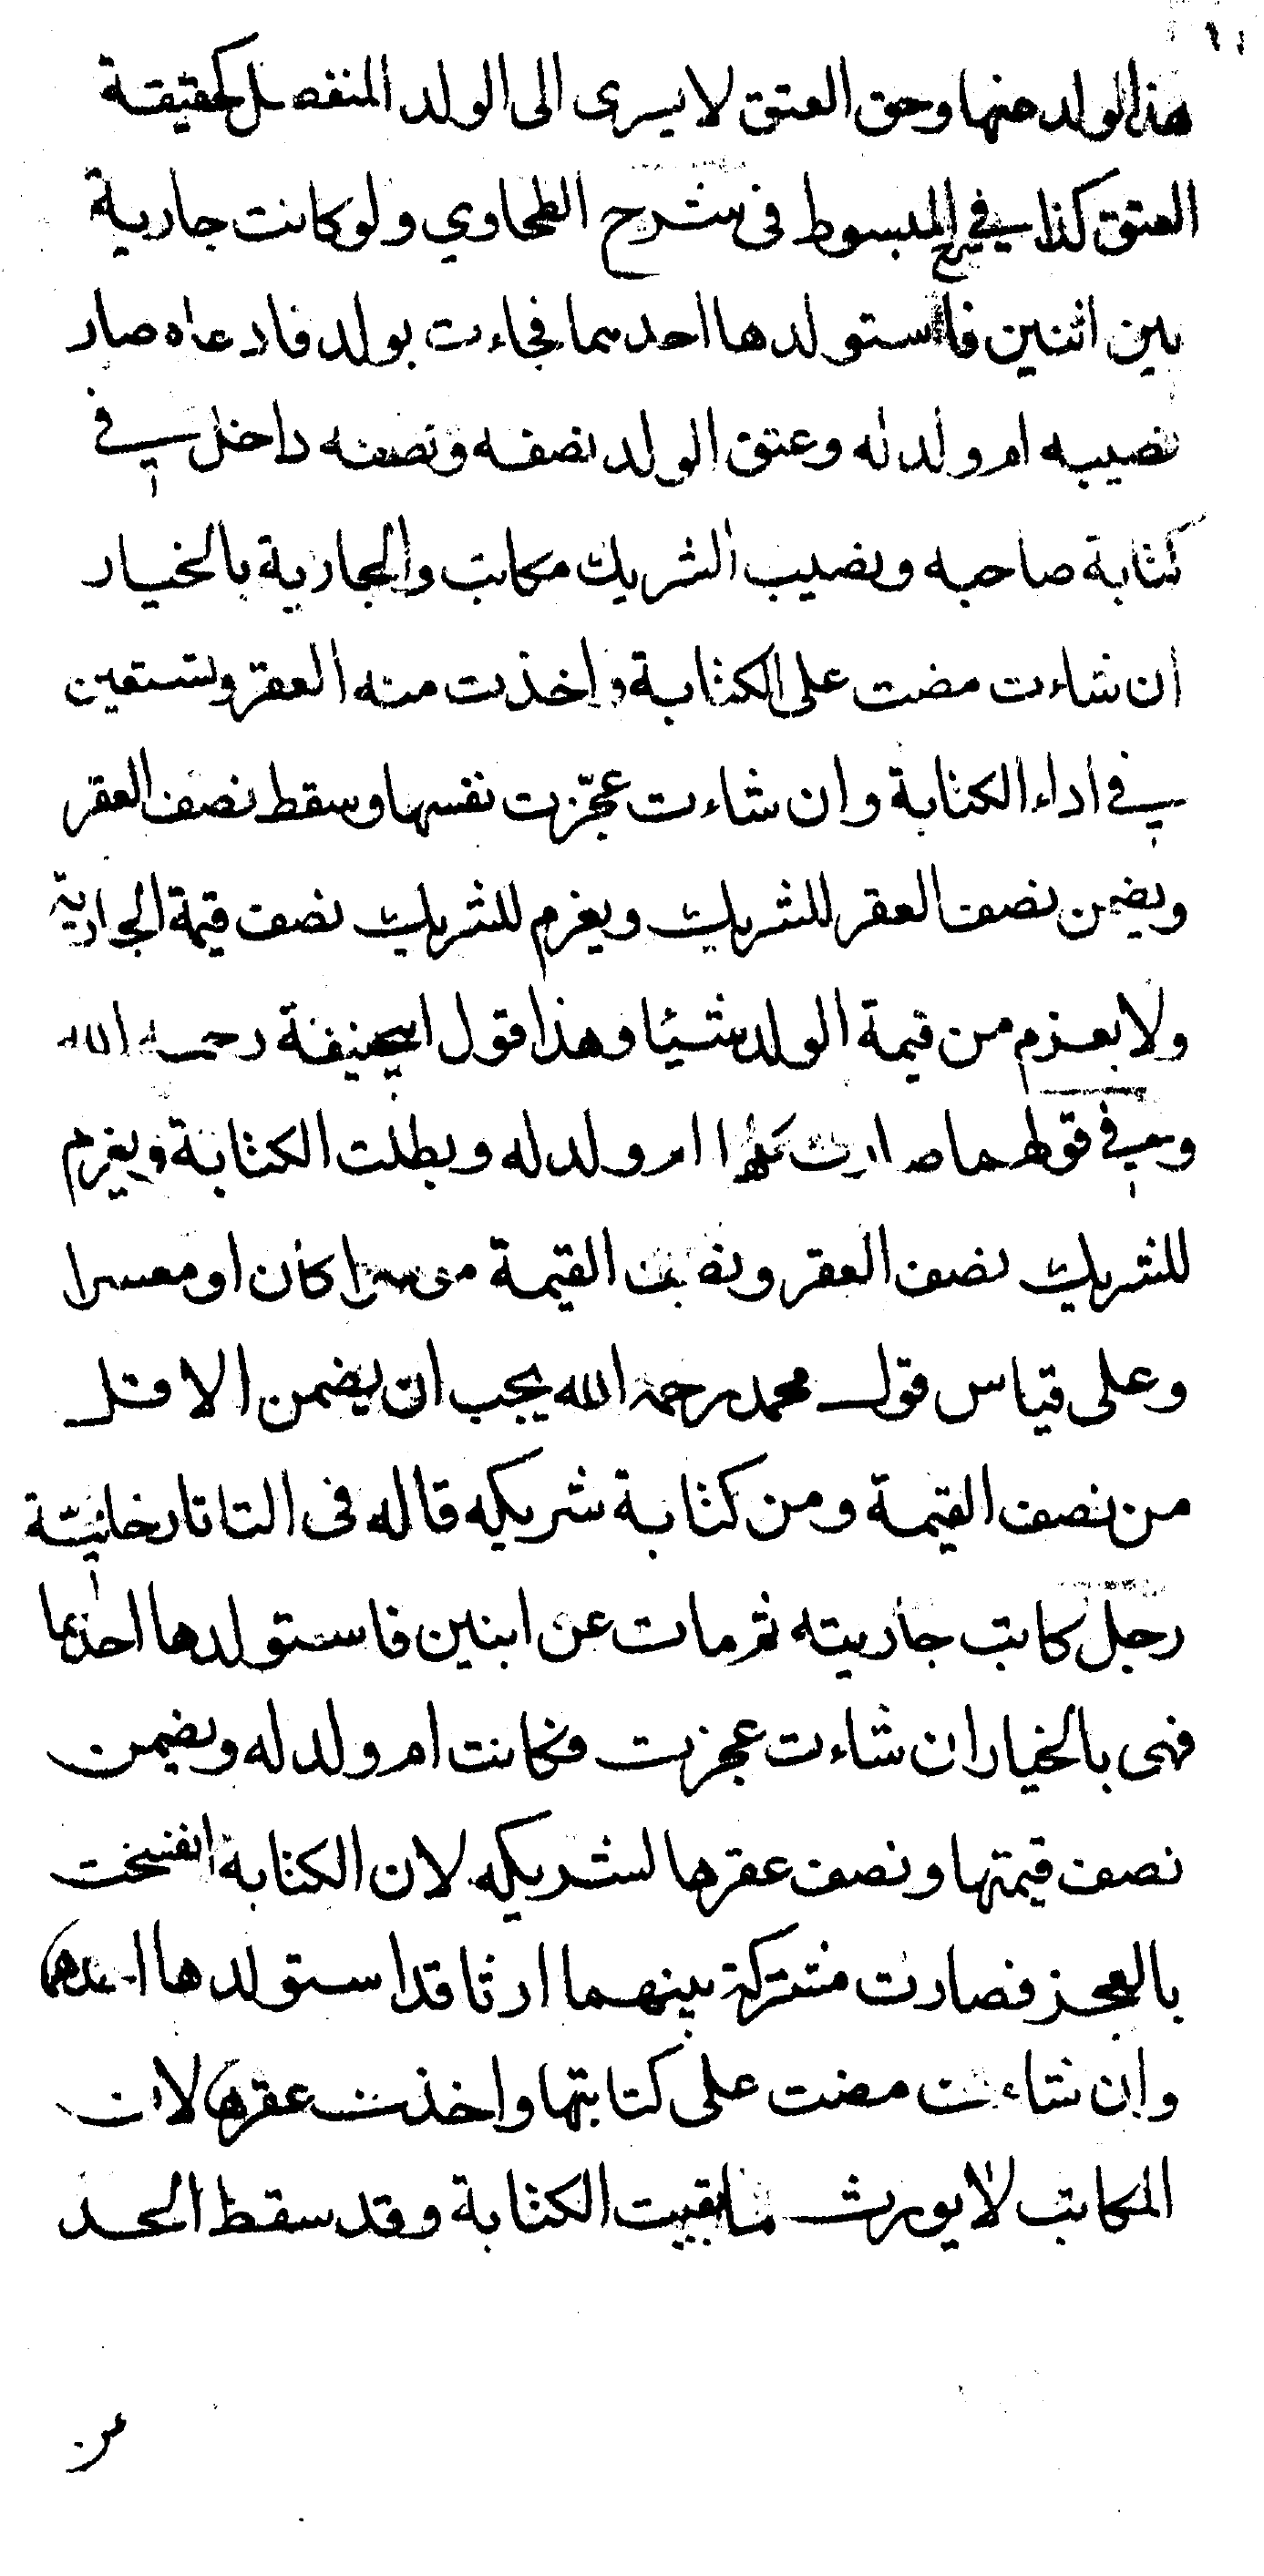 هذا الولد منها وحق العتق لا يسرى الى الولد المنفصل كحقيقة
العتق كذا في شرح المبسوط فى شرح الطحاوي ولو كانت جارية
بين اثنين فاستولدها احدهما فجاءت بولد فادعاه صار
نصيبه ام ولد له وعتق الولد نصفه ونصفه داخل في
كتابة صاحبه ونصيب الشريك مكاتب والجارية بالخيار
ان شاءت مضت على الكتابة واخذت منه العقر وتستعين
في اداء الكتابة وان شاءت عجّزت نفسها وسقط نصف العقر
ويضمن نصف العقر للشريك ويغرم للشريك نصف قيمة الجارية
ولا يغرم من قيمة الولد شيئا وهذا قول ابيحنيفة رحمه الله
وفي قولهما صارت كلها ام ولد له وبطلت الكتابة ويغرم
للشريك نصف العقر ونصف القيمة موسرا كان او معسرا
وعلى قياس قول محمد رحمه الله يجب ان يضمن الاقل
من نصف القيمة ومن كتابة شريكه قاله فى التاتارخانيّة
رجل كاتب جاريته ثم مات عن ابنين فاستولدها احدهما
فهى بالخيار ان شاءت عجزت فكانت ام ولد له ويضمن
نصف قيمتها ونصف عقرها لشريكه لان الكتابة انفسخت
بالعجز فصارت مشتركة بينهما ارثا قد استولدها احدهما
وان شاءت مضت على كتابتها واخذت عقرها لان
المكاتب لا يورث ما بقيت الكتابة وقد سقط الحد
عن